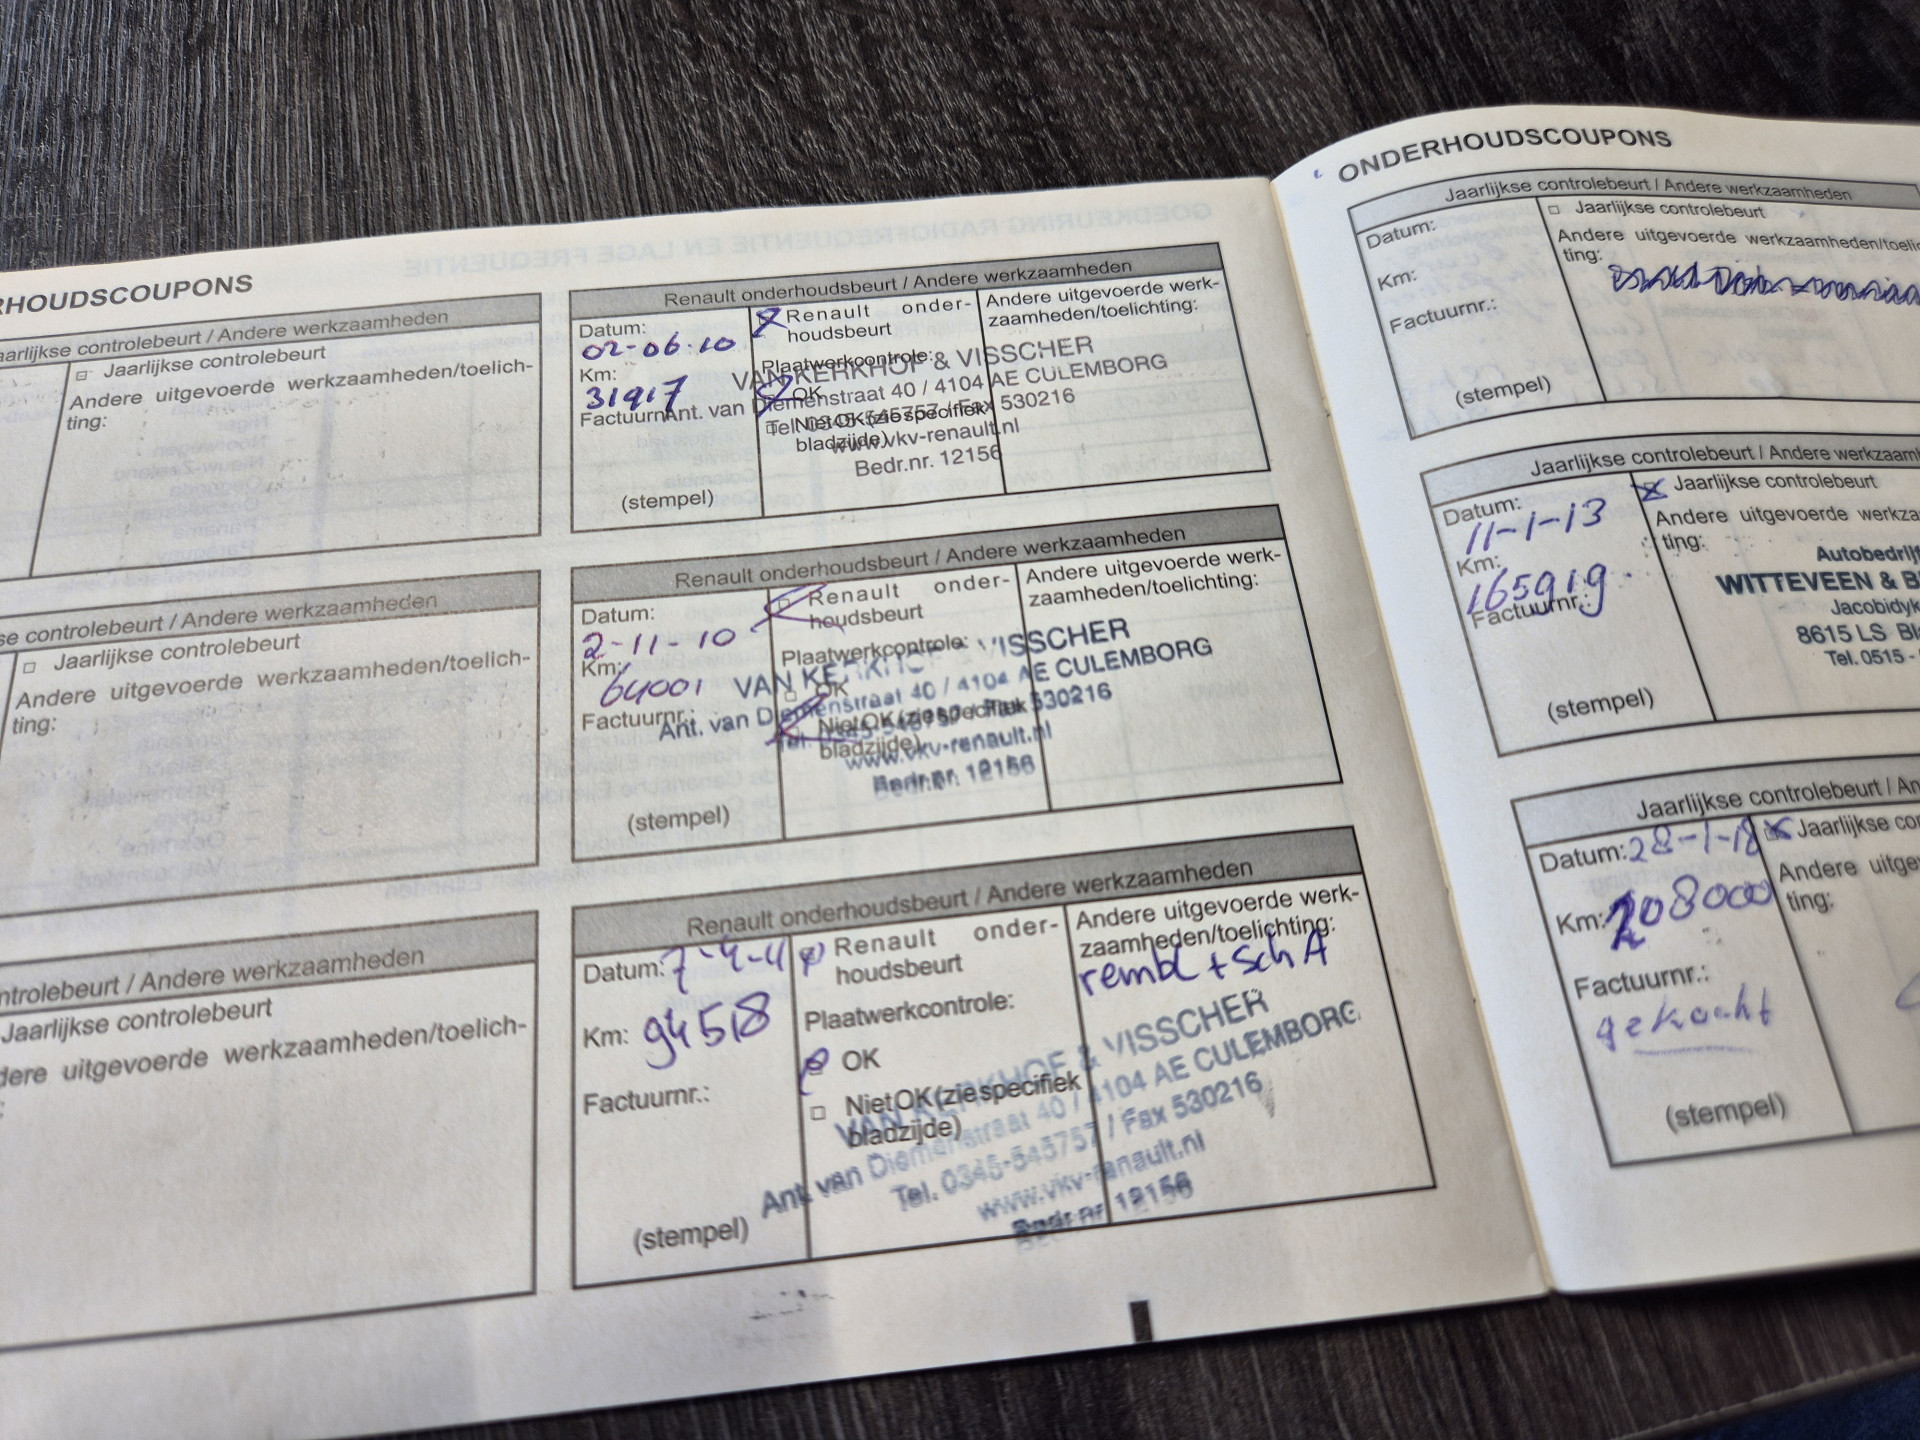 RHOUDSCOUPONS
aarlijkse controlebeurt / Andere werkzaamheden
□ Jaarlijkse controlebeurt
Andere uitgevoerde werkzaamheden/toelich-
ting:
se controlebeurt / Andere werkzaamheden
□ Jaarlijkse controlebeurt
Andere uitgevoerde werkzaamheden/toelich-
ting:
ntrolebeurt / Andere werkzaamheden
Jaarlijkse controlebeurt
dere uitgevoerde werkzaamheden/toelich-
Renault onderhoudsbeurt / Andere werkzaamheden
Datum:
02-06-10
Km:
31917
Factuurn
(stempel)
Renault onder-
houdsbeurt
Plaatwerkcontrole:
OK
Niet OK (zie specifiek
bladzijde)
Andere uitgevoerde werk-
zaamheden/toelichting:
VAN KERKHOF & VISSCHER
Ant. van Diemenstraat 40 / 4104 AE CULEMBORG
Tel. 0345-545757 / Fax 530216
www.vkv-renault.nl
Bedr.nr. 12156
Renault onderhoudsbeurt / Andere werkzaamheden
Datum:
2-11-10
Km:
64001
Factuurnr.:
(stempel)
Renault onder-
houdsbeurt
Plaatwerkcontrole:
□ OK
Niet OK (zie specifiek
bladzijde)
Andere uitgevoerde werk-
zaamheden/toelichting:
VAN KERKHOF & VISSCHER
Ant. van Diemenstraat 40 / 4104 AE CULEMBORG
Tel. 0345-545757 / Fax 530216
www.vkv-renault.nl
Bedr.nr. 12156
Renault onderhoudsbeurt / Andere werkzaamheden
Datum: 7-4-11
Km: 94518
Factuurnr.:
(stempel)
Renault onder-
houdsbeurt
Plaatwerkcontrole:
OK
□ Niet OK (zie specifiek
bladzijde)
Andere uitgevoerde werk-
zaamheden/toelichting:
rembl + Sch A
VAN KERKHOF & VISSCHER
Ant. van Diemenstraat 40 / 4104 AE CULEMBORG
Tel. 0345-545757 / Fax 530216
www.vkv-renault.nl
Bedr.nr. 12156
ONDERHOUDSCOUPONS
Jaarlijkse controlebeurt / Andere werkzaamheden
Datum:
Km:
Factuurnr.:
(stempel)
□ Jaarlijkse controlebeurt
Andere uitgevoerde werkzaamheden/toelic
ting:
Jaarlijkse controlebeurt / Andere werkzaamh
Datum:
11-1-13
Km:
165919
Factuurnr.:
(stempel)
Jaarlijkse controlebeurt
Andere uitgevoerde werkza
ting:
Autobedrijf
WITTEVEEN & B
Jacobidyk
8615 LS Bla
Tel. 0515 -
Jaarlijkse controlebeurt / An
Datum: 28-1-18
Km: 208000
Factuurnr.:
gekocht
(stempel)
Jaarlijkse co
Andere uitge
ting: